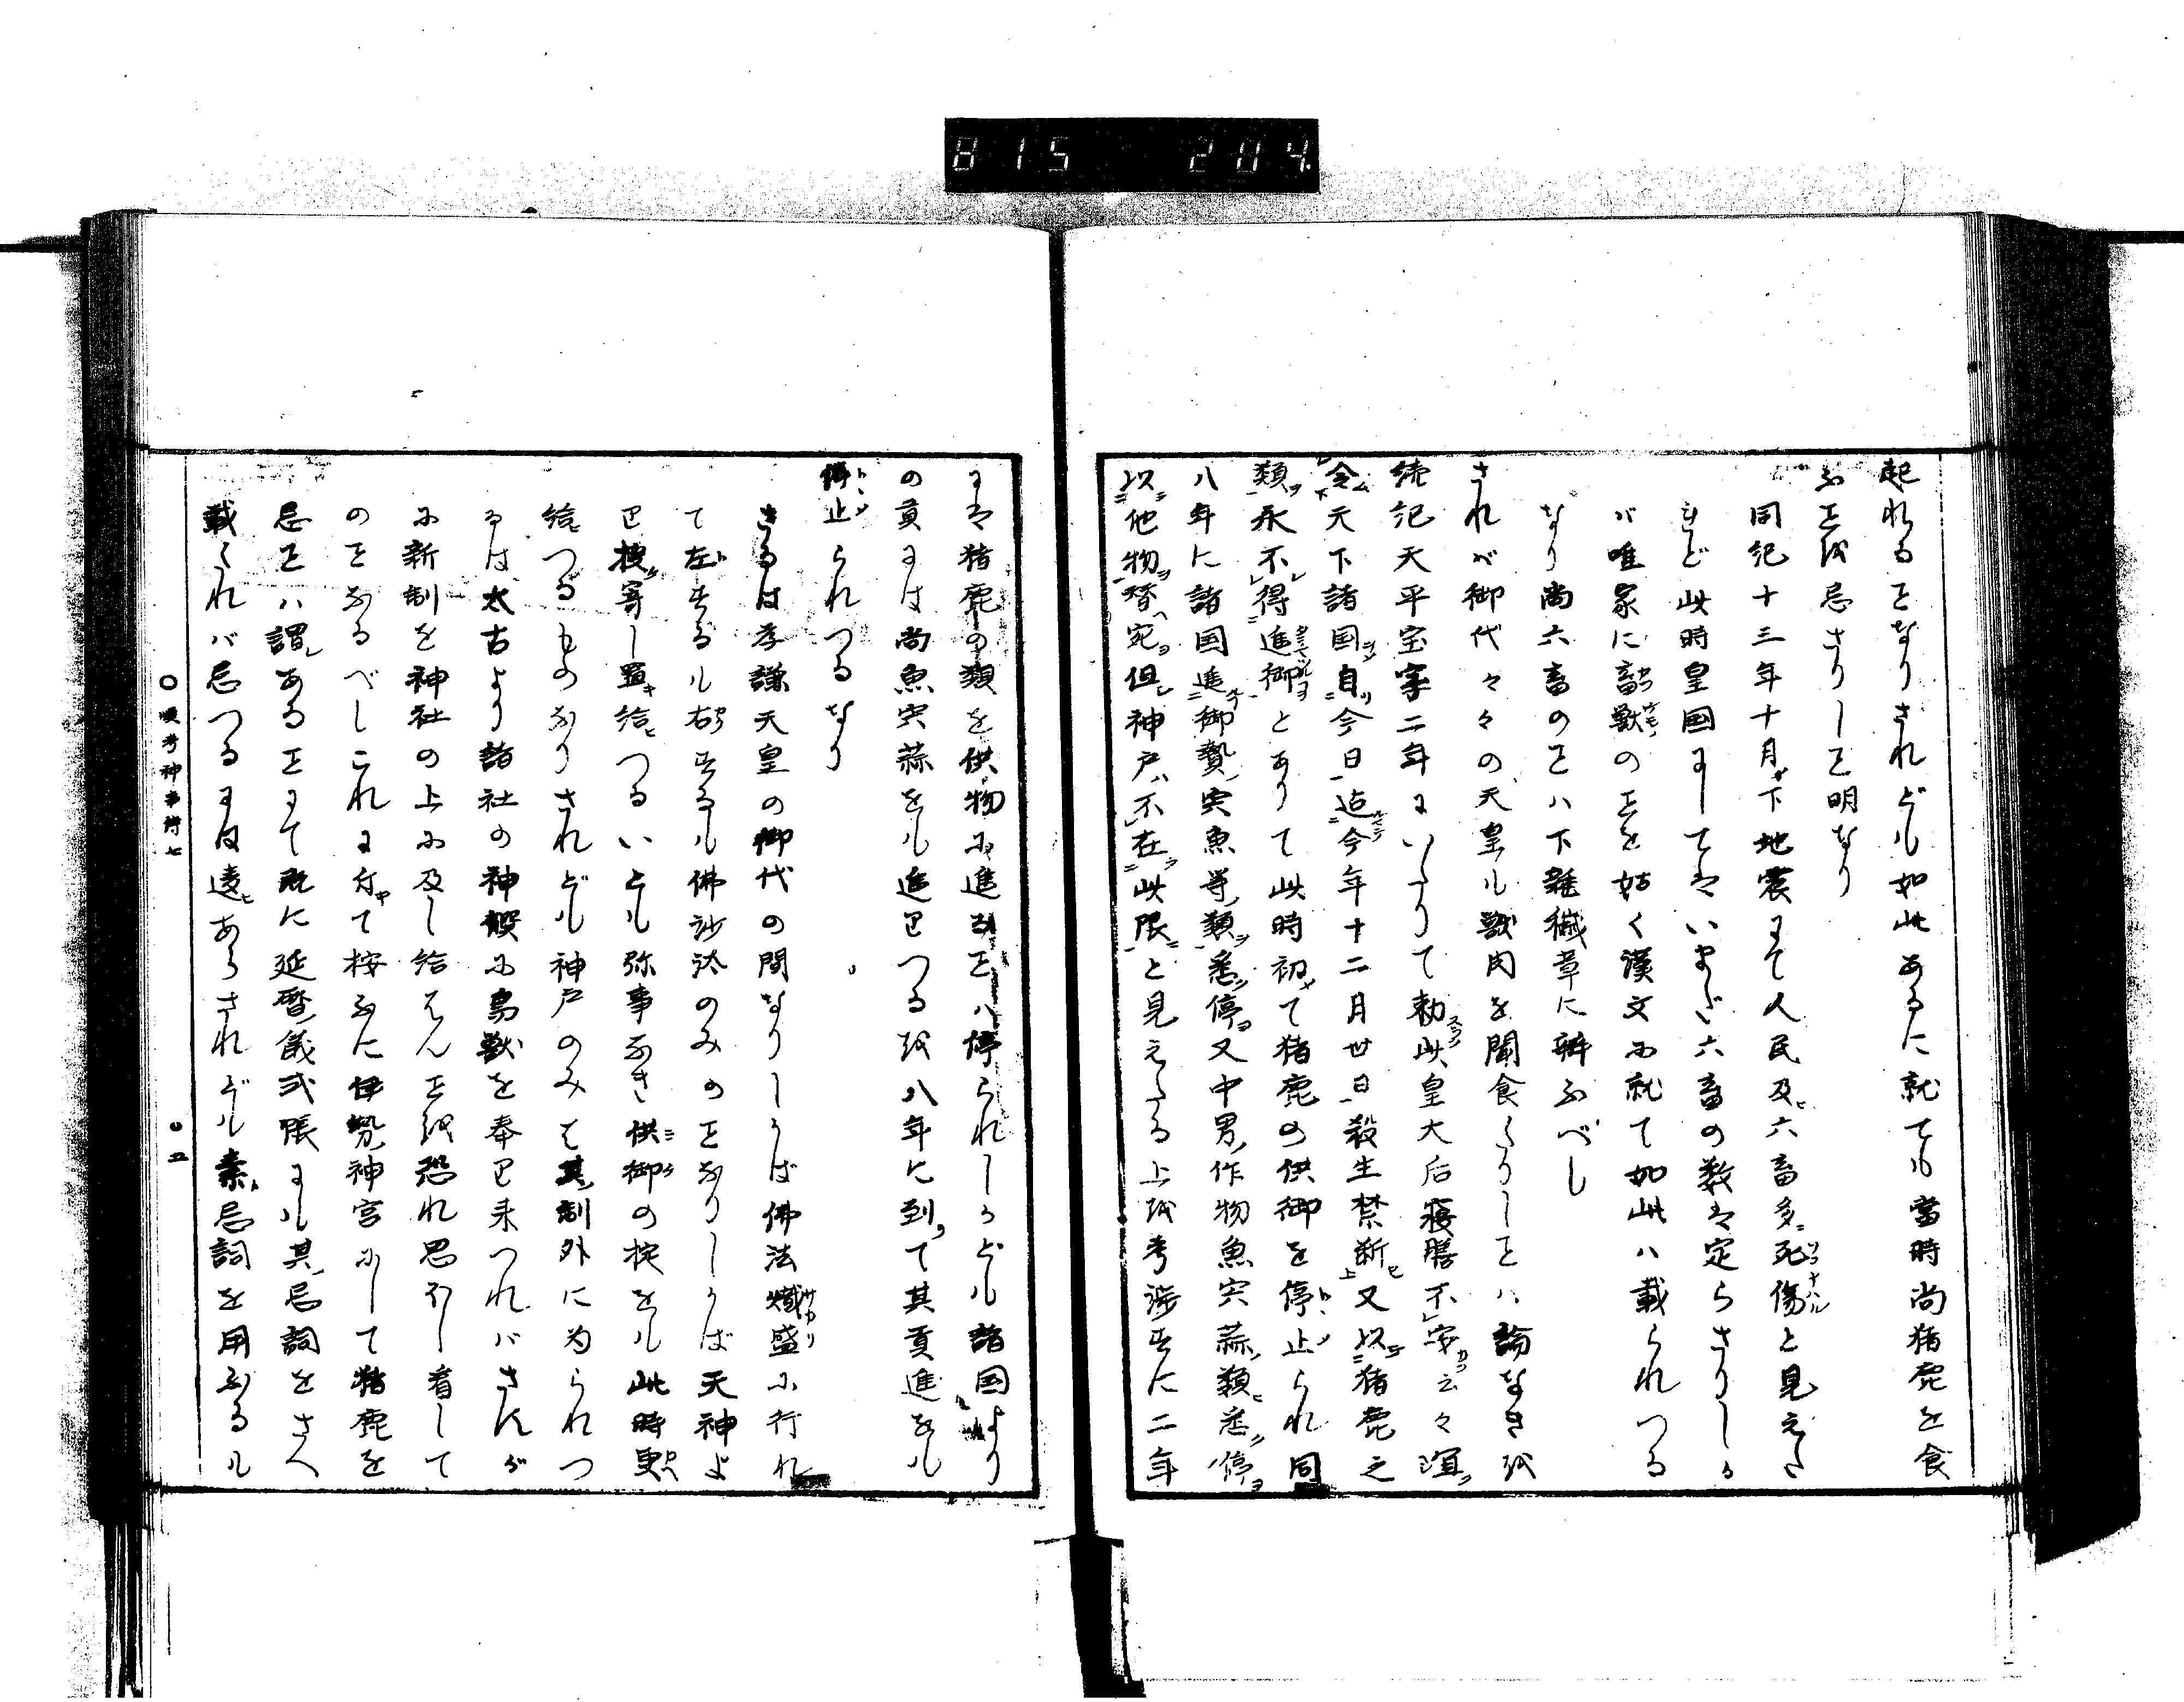 815 204.
起れるをなりされども如此あるに就ても當時尚猪鹿を食
ふを忌さりしを明なり
同紀十三年十月下地震にて人民及六畜多死傷と見えた
れど此時皇国にしてはいまだ六畜の数は定らさりしか
バ唯家に畜獣のを姑く漢文に就て如此ハ載られつる
なり尚六畜のをハ下雜穢章に辨ふべし
されバ御代々々の天皇も獣肉を聞食たりしをハ論なきを
続記天平宝字二年にいたりて勅此皇大后寝膳不安云々宜
令天下諸国自今日迄今年十二月卅日殺生禁断又以猪鹿之
類永不得進御とありて此時初て猪鹿の供御を停止られ同
八年に諸国進御贄宍魚等類悉停又中男作物魚宍蒜類悉停
以他物替宛但神戸不在此限と見えたる上を考渉すに二年
には猪鹿の類を供物に進るをハ停られしかども諸国より
の貢には尚魚宍蒜をも進りつるを八年に到て其貢進をも
停止られつるなり
さるは孝謙天皇の御代の間なりしかば佛法熾盛に行れ
て左するも右するも佛沙汰のみのをなりしかば天神よ
り授寄し置給つるいとも弥事なき供御の掟をも此時更
給つるものなりされども神戸のみは其制外に為られつ
るは太古より諸社の神饌に鳥獣を奉り来つれバさんが
に新制を神社の上に及し給はんを恐れ思ほし看して
のをなるべしこれに付て按ふに伊勢神宮にして猪鹿を
忌をハ謂あるをにて既に延暦儀式帳にも其忌詞をさへ
載くれバ忌つるには違あらされども素忌詞を用ふるも
神事